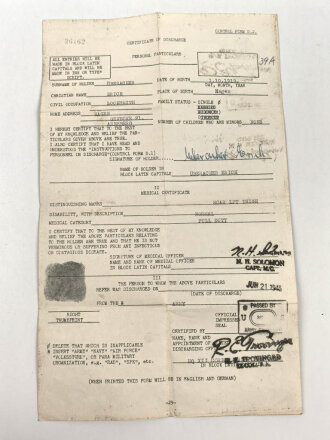 CONTROL FORM D.2.
CERTIFICATE OF DISCHARGE
PERSONAL PARTICULARS
ALL ENTRIES WILL BE
MADE IN BLOCK LATIN
CAPITALS AND WILL BE
MADE IN INK OR TYPE-
SCRIPT.
39A
SURNAME OF HOLDER
DATE OF BIRTH
DAY, MONTH, YEAR
CHRISTIAN NAME ERICH
PLACE OF BIRTH Hagen
CIVIL OCCUPATION LOCKSMITH
FAMILY STATUS - SINGLE
HOME ADDRESS HAGEN
NUMBER OF CHILDREN WHO ARE MINORS NONE
I HEREBY CERTIFY THAT TO THE BEST
OF MY KNOWLEDGE AND BELIEF THE PAR-
TICULARS GIVEN ABOVE ARE TRUE.
I ALSO CERTIFY THAT I HAVE READ AND
UNDERSTOOD THE "INSTRUCTIONS TO
PERSONNEL ON DISCHARGE" (CONTROL FORM D.1)
SIGNATURE OF HOLDER
NAME OF HOLDER IN
BLOCK LATIN CAPITALS
II
MEDICAL CERTIFICATE
DISTINGUISHING MARKS
DISABILITY, WITH DESCRIPTION NORMAL
MEDICAL CATEGORY FULL DUTY
I CERTIFY THAT TO THE BEST OF MY KNOWLEDGE
AND BELIEF THE ABOVE PARTICULARS RELATING
TO THE HOLDER ARE TRUE AND THAT HE IS NOT
VERMINOUS OR SUFFERING FROM ANY INFECTIOUS
OR CONTAGIOUS DISEASE.
SIGNATURE OF MEDICAL OFFICER
NAME AND RANK OF MEDICAL OFFICER
IN BLOCK LATIN CAPITALS
M. H. SOLOMON
CAPT. M.C.
III
THE PERSON TO WHOM THE ABOVE PARTICULARS
REFER WAS DISCHARGED ON
JUN 21 1945
(DATE OF DISCHARGE)
FROM THE ARMY
PASSED BY
RIGHT
THUMBPRINT
OFFICIAL
IMPRESSED
SEAL
CERTIFIED BY
NAME, RANK AND
APPOINTMENT OF
DISCHARGING OFFICER
IN BLOCK
DELETE THAT WHICH IS INAPPLICABLE
INSERT "ARMY" "NAVY" "AIR FORCE"
"VOLKSSTURM", OR PARA MILITARY
ORGANIZATION, e.g. "RAD", "NSFK", etc.
(WHEN PRINTED THIS FORM WILL BE IN ENGLISH AND GERMAN)